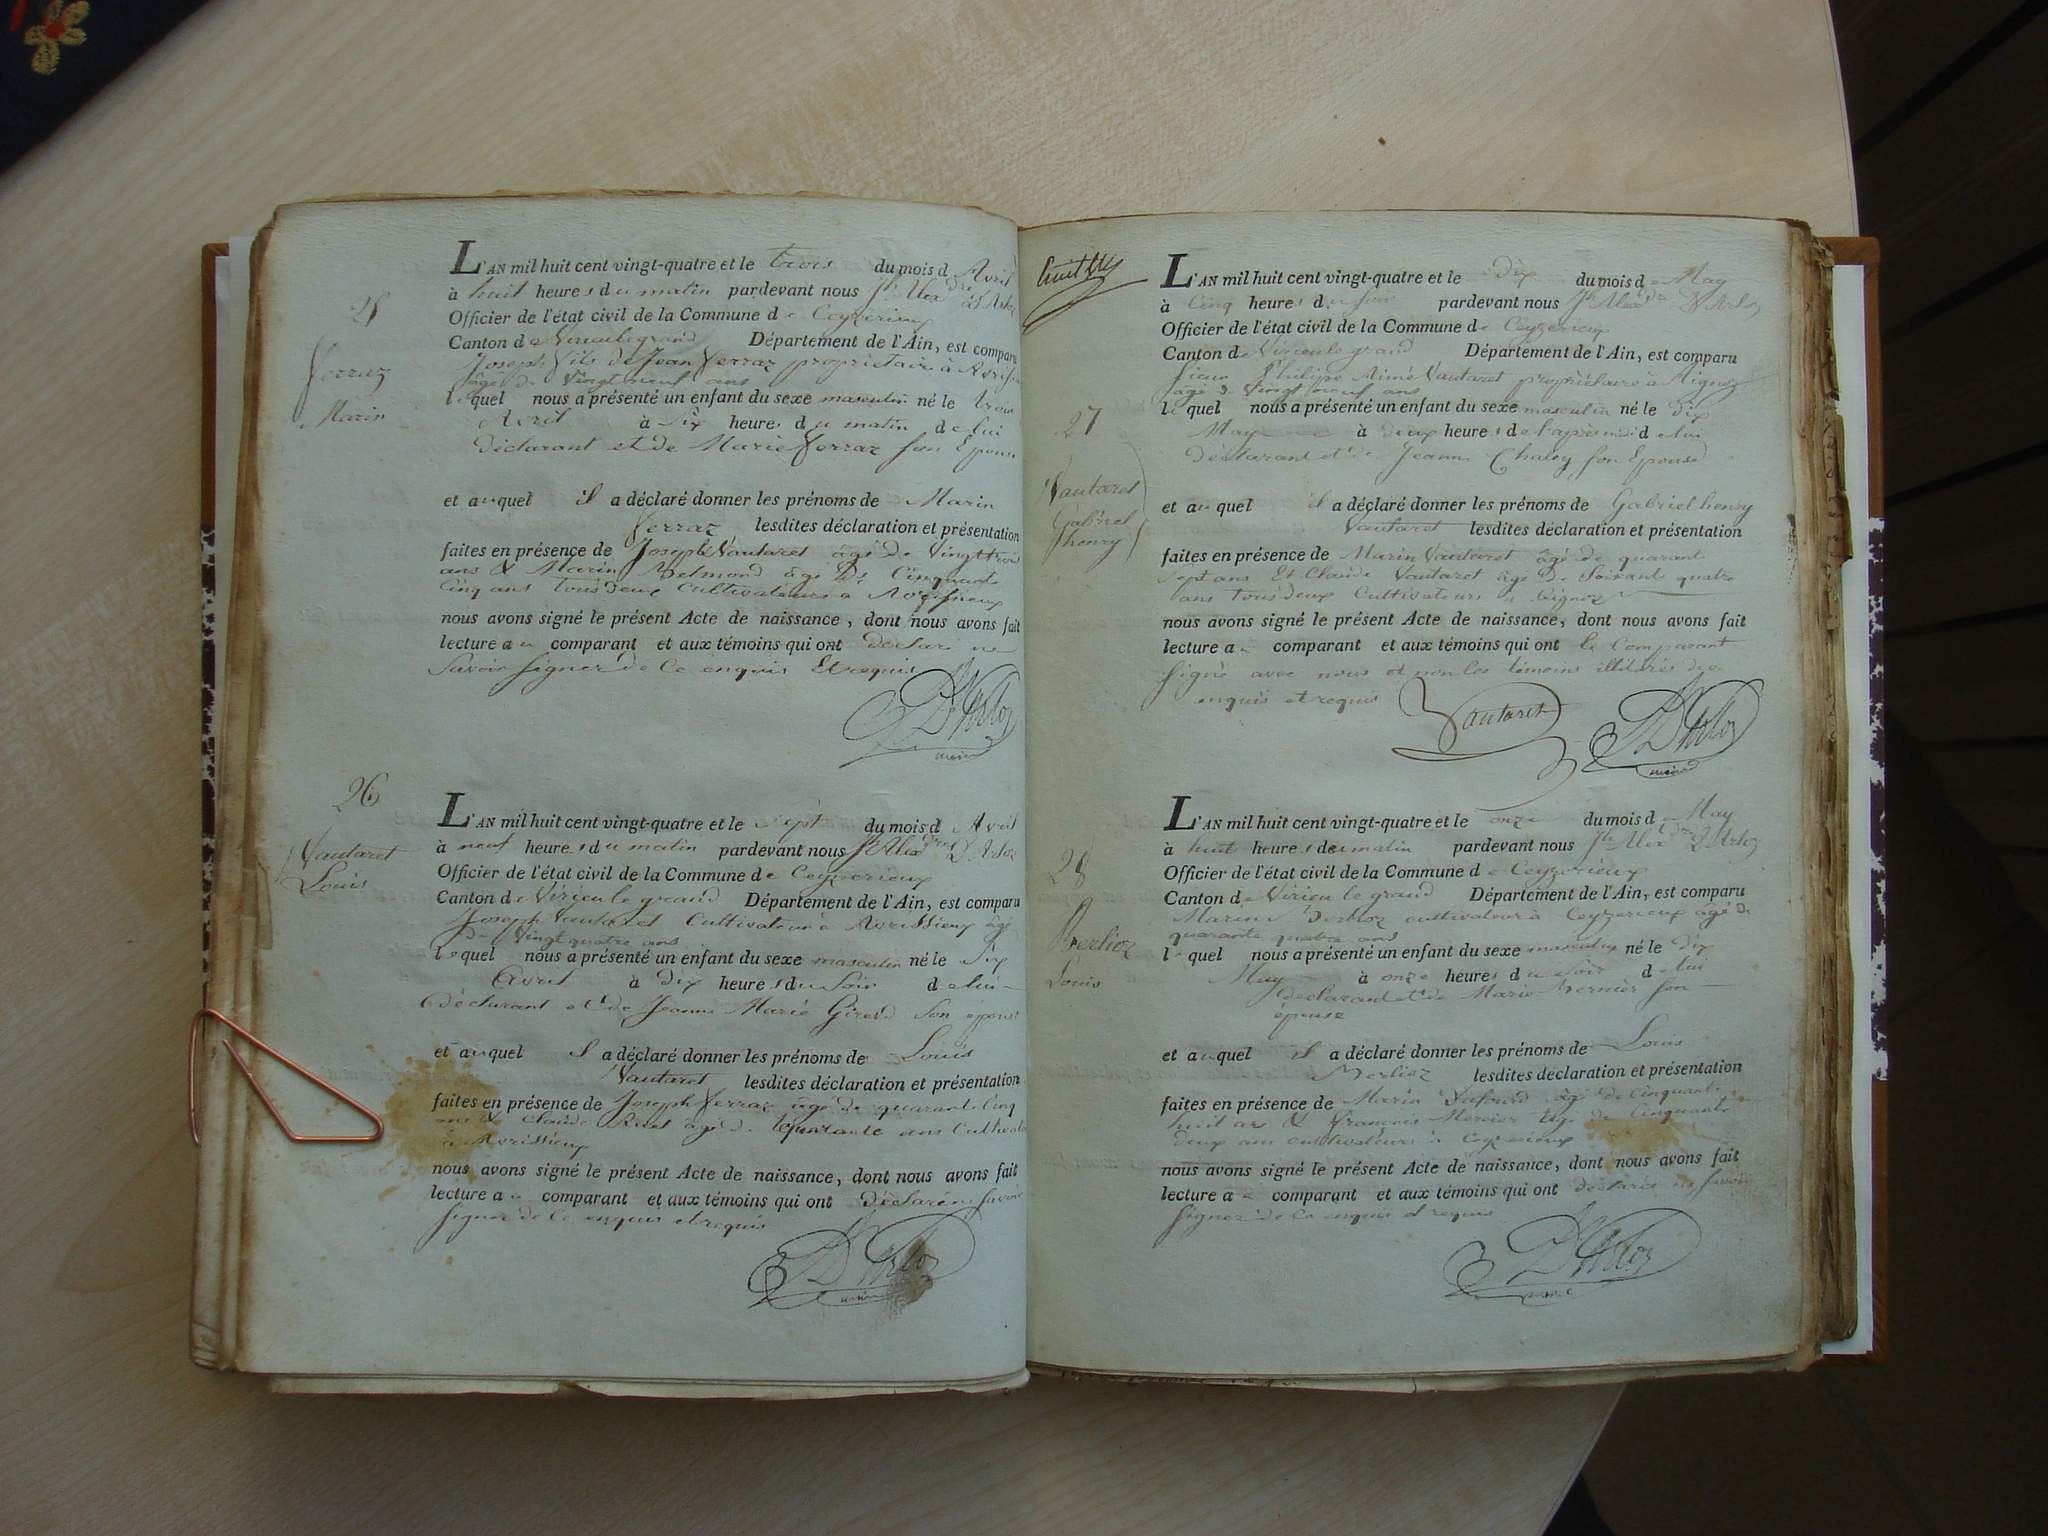 25
Ferraz
Marin
L'AN mil huit cent vingt-quatre et le trois du mois d Avril
à huit heures du matin pardevant nous Jh Alexdre D'Arloz
Officier de l'état civil de la Commune de Ceyzerieux
Canton de Virieulegrand Département de l'Ain, est comparu
Joseph fils de Jean Ferraz propriétaire à
âgé de vingt neuf ans
lequel nous a présenté un enfant du sexe masculin né le trois
Avril à Six heures du matin de lui
déclarant et de Marie Ferraz son Epouse
et auquel il a déclaré donner les prénoms de Marin
Ferraz lesdites déclaration et présentation
faites en présence de Joseph Vautaret âgé de vingt trois
ans & Marin Belmond âgé de Cinquante
Cinq ans tous deux Cultivateurs à
nous avons signé le présent Acte de naissance, dont nous avons fait
lecture au comparant et aux témoins qui ont déclaré ne
Savoir signer de Ce enquis Et requis
D'Arloz
maire
26
Vautaret
Louis
L'AN mil huit cent vingt-quatre et le Sept du mois d Avril
à neuf heures du matin pardevant nous Jh Alexdre D'Arloz
Officier de l'état civil de la Commune de Ceyzerieux
Canton de Virieu le grand Département de l'Ain, est comparu
Joseph Vautaret Cultivateur à Avrissieux âgé
de vingt quatre ans
lequel nous a présenté un enfant du sexe masculin né le Six
Avril à dix heures du Soir de lui
déclarant et de Jeanne Marie Girerd Son épouse
et auquel il a déclaré donner les prénoms de Louis
Vautaret lesdites déclaration et présentation
faites en présence de Joseph Ferraz âgé de quarante Cinq
ans & Claude âgé de quarante ans Cultivat
à Avrissieux
nous avons signé le présent Acte de naissance, dont nous avons fait
lecture au comparant et aux témoins qui ont déclaré ne Savoir
signer de Ce enquis et requis
D'Arloz
maire
L'AN mil huit cent vingt-quatre et le Dix du mois de May
à Cinq heures du soir pardevant nous Jh Alexdre D'Arloz
Officier de l'état civil de la Commune de Ceyzerieux
Canton de Virieu le grand Département de l'Ain, est comparu
Sieur Philipe Aimé Vautaret propriétaire à
âgé de vingt neuf ans
lequel nous a présenté un enfant du sexe masculin né le dix
May à deux heures de l'après midi de lui
déclarant et de Jeanne Chaley son Epouse
27
Vautaret
Gabriel
henry
et auquel il a déclaré donner les prénoms de Gabriel henry
Vautaret lesdites déclaration et présentation
faites en présence de Marin Vautaret âgé de quarant
Sept ans Et Claude Vautaret âgé de Soixant quatre
ans tous deux Cultivateurs à
nous avons signé le présent Acte de naissance, dont nous avons fait
lecture au comparant et aux témoins qui ont le Comparant
Signé avec nous et non les témoins illiterés de ce
enquis et requis
Vautaret
D'Arloz
maire
28
Berlioz
Louis
L'AN mil huit cent vingt-quatre et le onze du mois de May
à huit heures du matin pardevant nous Jh Alexdre D'Arloz
Officier de l'état civil de la Commune de Ceyzerieux
Canton de Virieu le grand Département de l'Ain, est comparu
Marin Berlioz cultivateur à Ceyzerieux âgé de
quarante quatre ans
lequel nous a présenté un enfant du sexe masculin né le dix
May à onze heures du Soir de lui
déclarant et de Marie Mermier Son
épouse
et auquel il a déclaré donner les prénoms de Louis
Berlioz lesdites déclaration et présentation
faites en présence de Marin âgé de Cinquante
huit ans & françois Mercier âgé de Cinquante
deux ans cultivateurs à Ceyzerieux
nous avons signé le présent Acte de naissance, dont nous avons fait
lecture au comparant et aux témoins qui ont déclarés ne Savoir
signer de Ce enquis et requis
D'Arloz
maire